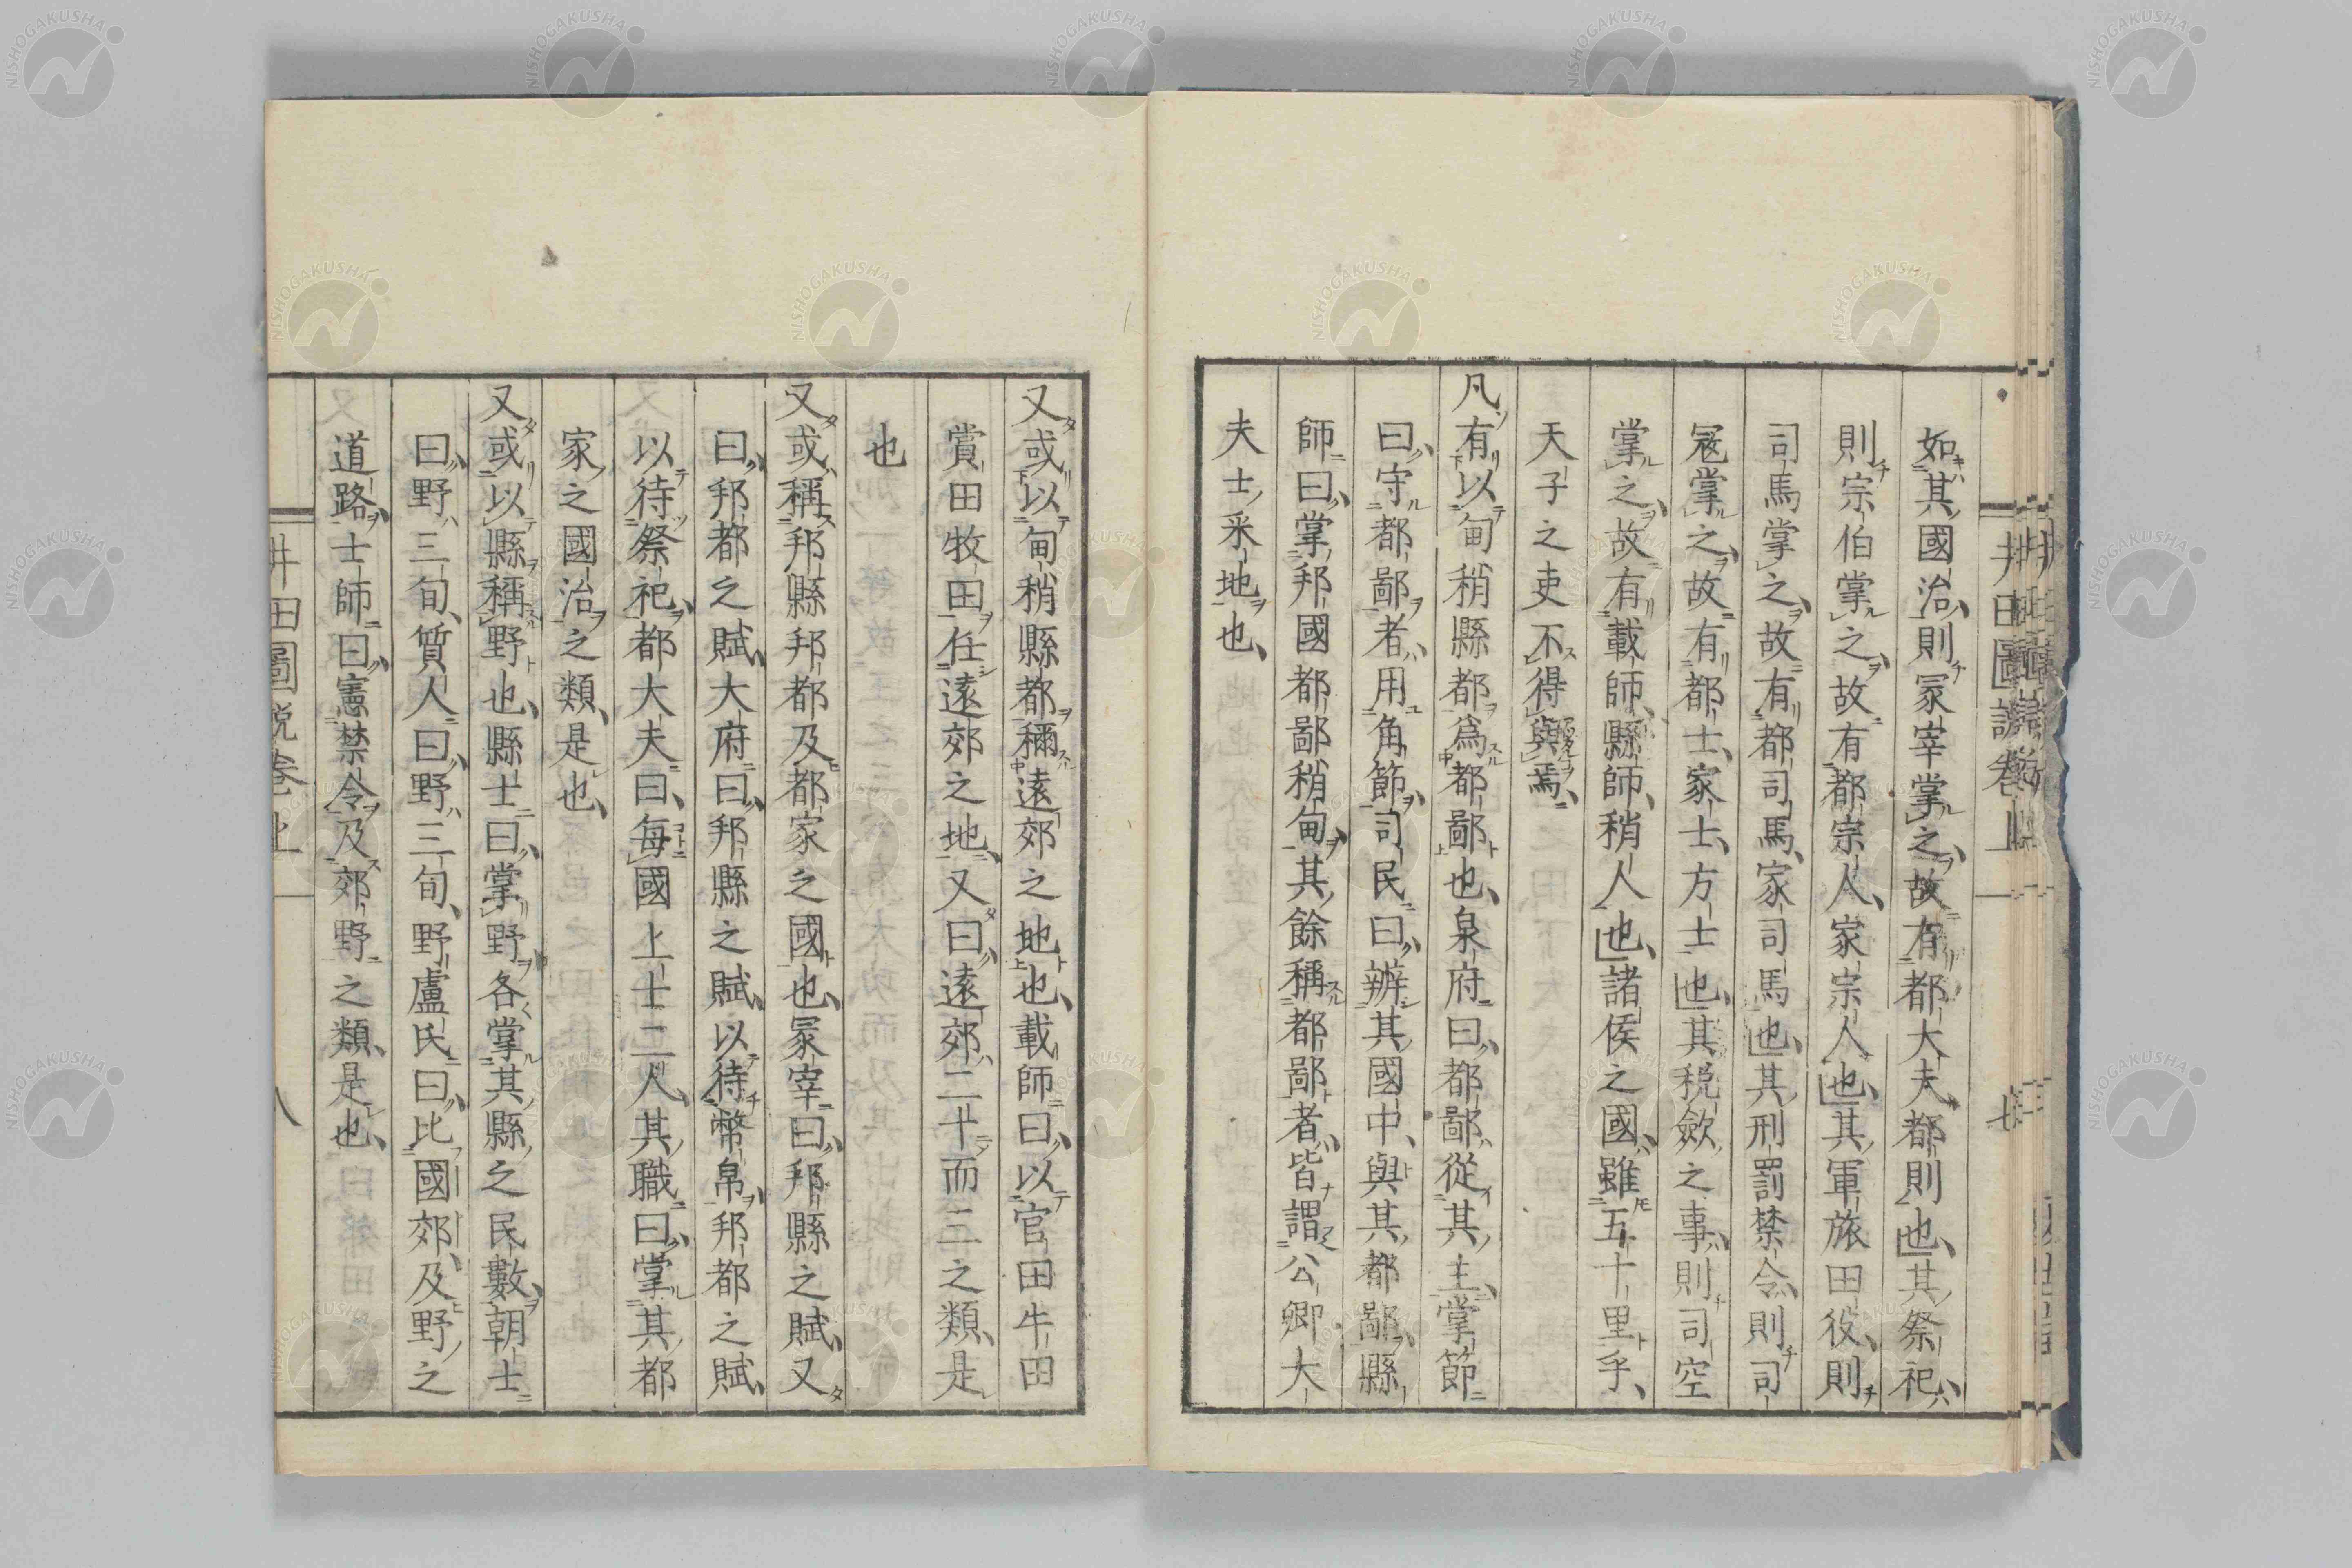 如其國治、則冢宰掌之、故有都大夫都則也、其祭祀、
則宗伯掌之、故有都宗人、家宗人也、其軍旅田役、則
司馬掌之、故有都司馬、家司馬也、其刑罰禁令、則司
寇掌之、故有都士、家士、方士也、其税斂之事、則司空
掌之、故有載師、縣師、稍人也、諸侯之國、雖五十里乎、
天子之吏不得與焉、
凡有以甸稍縣都爲都鄙也、泉府曰、都鄙從其主、掌節
曰、守都鄙者、用角節、司民曰、辨其國中、與其都鄙、縣
師曰、掌邦國都鄙稍甸、其餘稱都鄙者、皆謂公卿大
夫士采地也、
又或以甸稍縣都稱遠郊之地也、載師曰、以官田牛田
賞田牧田任遠郊之地、又曰、遠郊二十而三之類、是
也
又或稱邦縣邦都及都家之國也、冢宰曰、邦縣之賦、又
曰、邦都之賦、大府曰、邦縣之賦、以待幣帛、邦都之賦、
以待祭祀、都大夫曰、每國上士二人、其職曰、掌其都
家之國治之類、是也、
又或以縣稱野也、縣士曰、掌野各掌其縣之民數、朝士
曰、野三旬、質人曰、野三旬、野廬氏曰、比國郊、及野之
道路、士師曰、憲禁令及郊野之類、是也、
井田圖説卷上
八
NISHOGAKUSHA